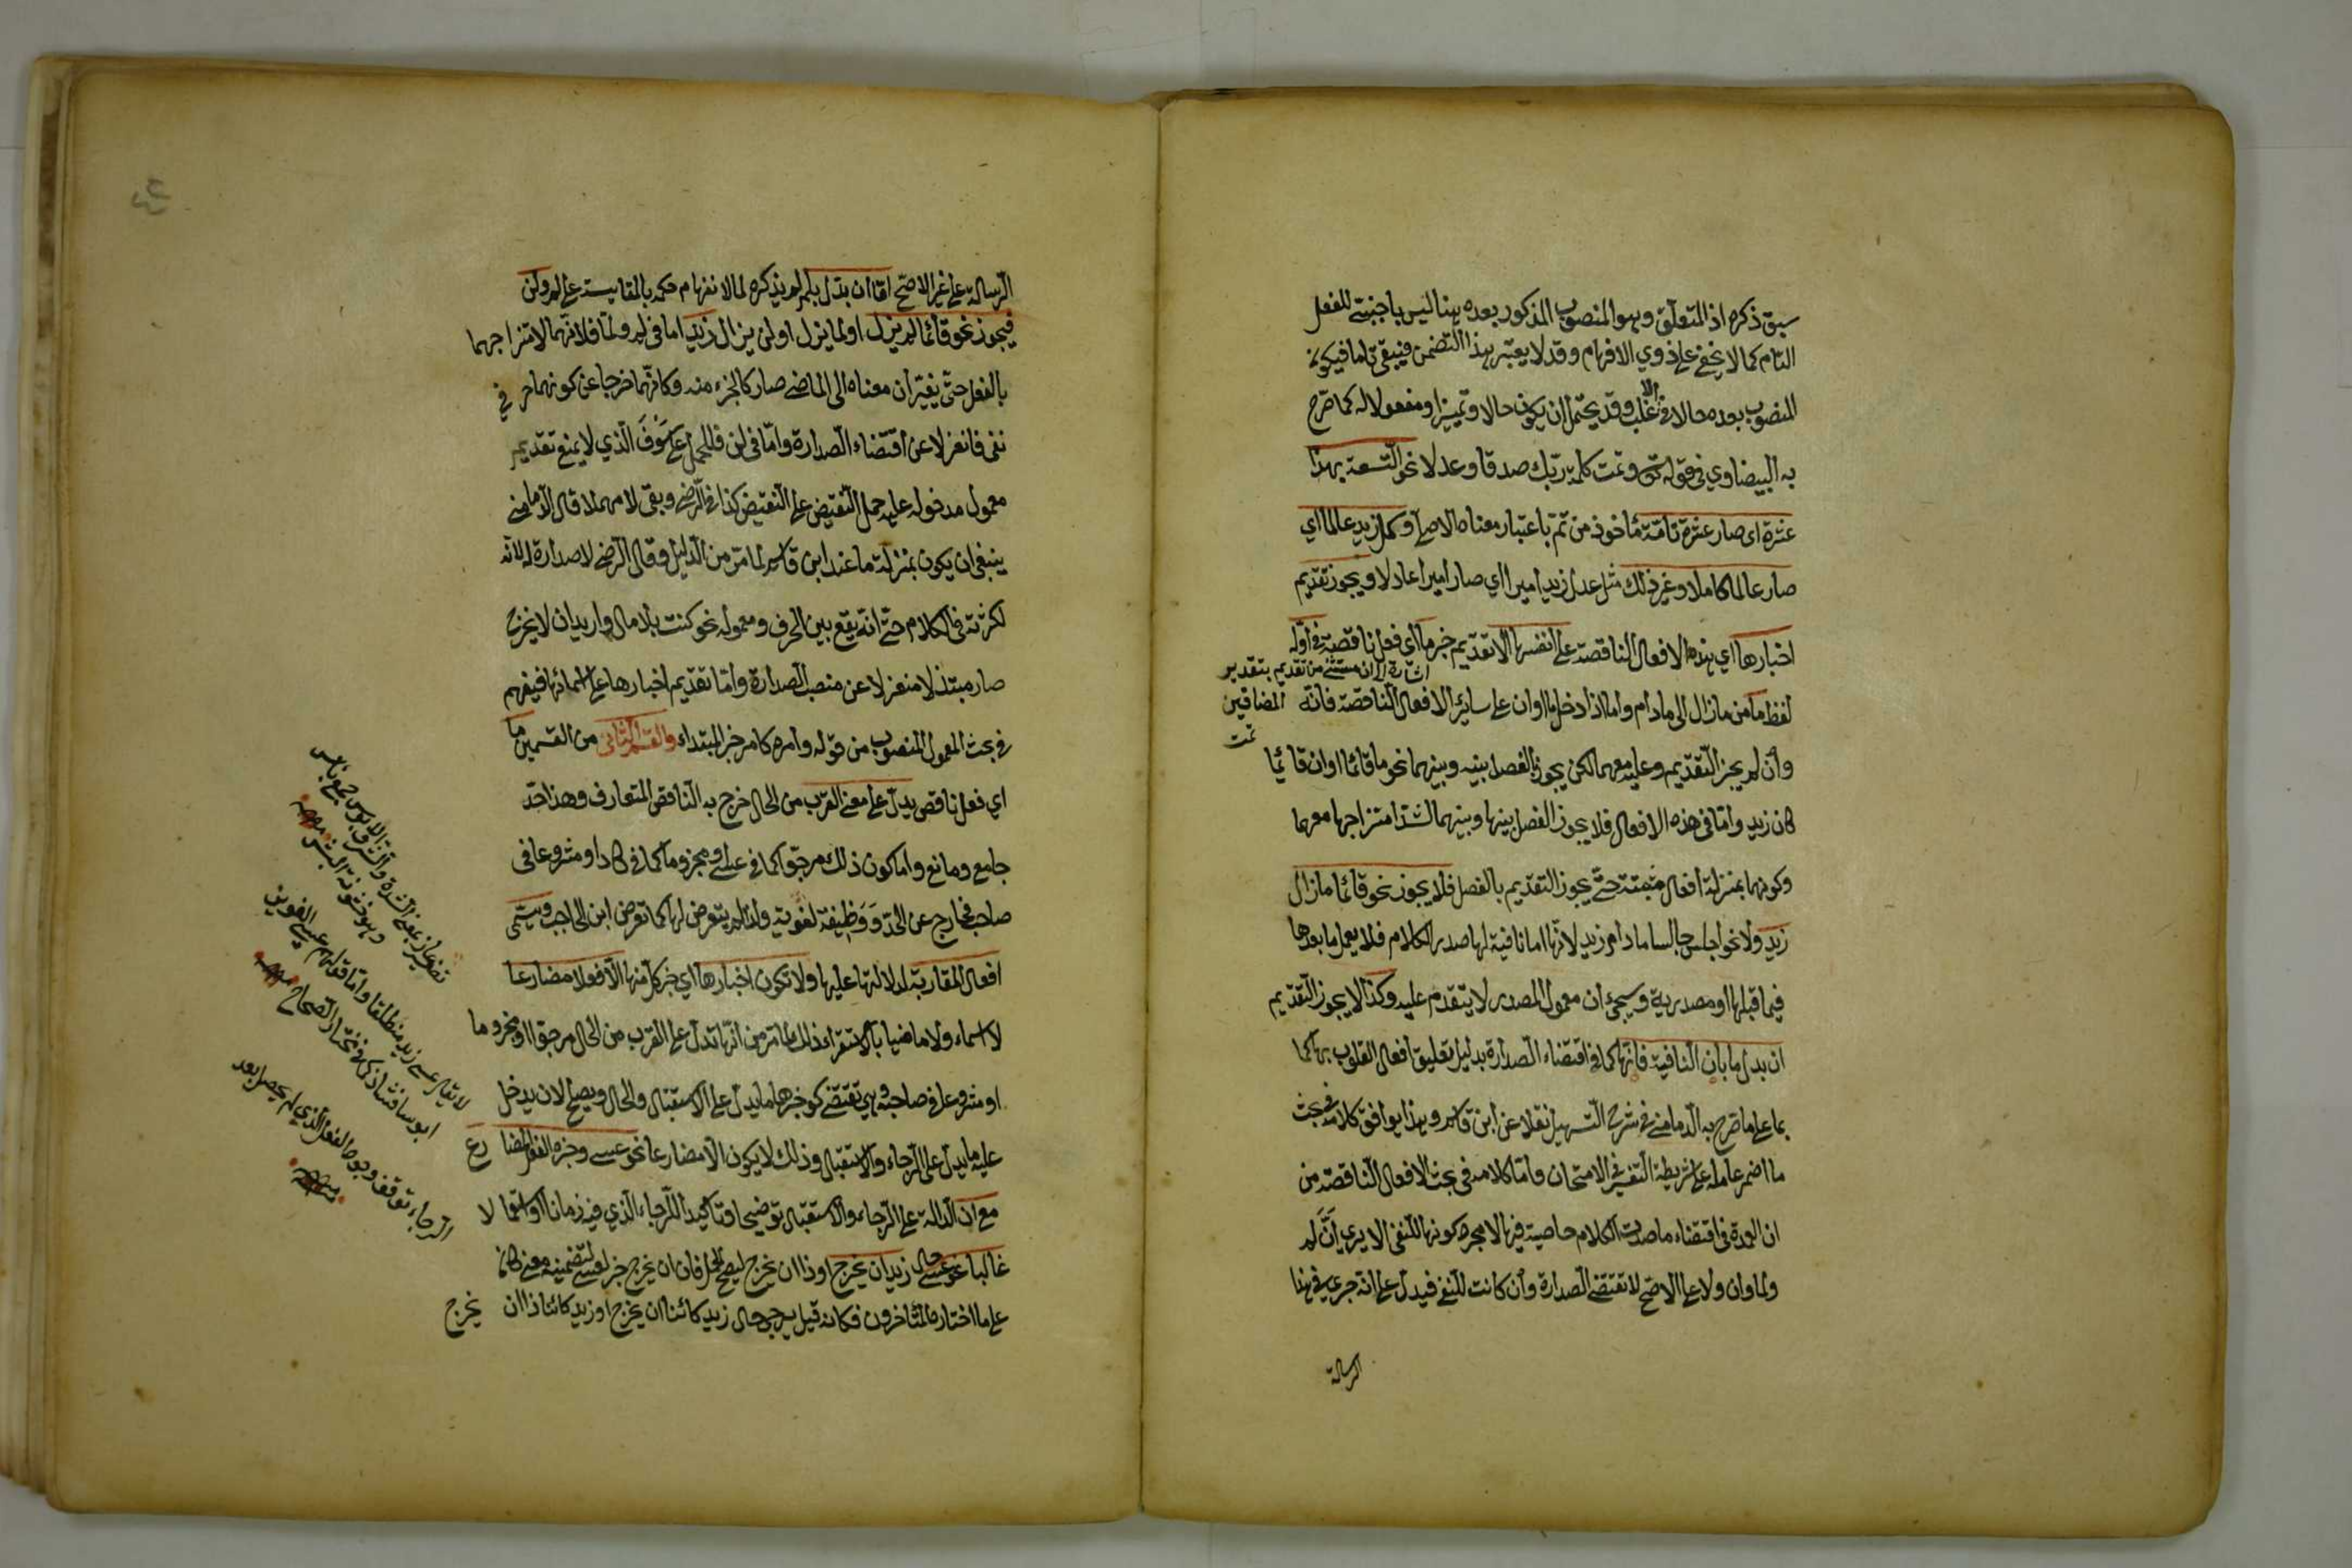 سبق ذكره اذ المتعلق وهو المنصوب المذكور بعده هنا ليس باجنبي للفعل
التام كما لا يخفى على ذوي الافهام وقد لا يعتبر هذا التضمن فيبقى تاما فيكون
المنصوب بعده حالا في الاغلب وقد يحتمل ان يكون حالا وتميزا ومفعولا له كما صرح
به البيضاوي في قوله تعالى وتمت كلمة ربك صدقا وعدلا نحو التسعة بهذا
عشرة اى صار عشرة تامة مأخوذ من تم باعتبار معناه الاصلي وكمل زيد عالما اي
صار عالما كاملا وغير ذلك مثل عدل زيد اميرا اي صار اميرا عادلا ويجوز تقديم
اخبارها اي هذه الافعال الناقصة على انفسها الا تقديم خبر ما اى فعل ناقصة في اوله
اشارة الى ان مستثنى من تقديم بتقدير
المضافين
تمت
لفظ ما من مازال الى مادام واما اذا دخل ما او ان على سائر الافعال الناقصة فانه
وان لم يجز التقديم وعليه معهما لكن يجوز الفصل بينه وبينهما نحو ما قائما او ان قائما
كان زيد واما في هذه الافعال فلا يجوز الفصل بينها وبينهما لشدة امتزاجها معهما
وكونهما بمنزلة افعال مثبتة حتى يجوز التقديم بالفصل فلا يجوز نحو قائما مازال
زيد ولا نحو اجلس جالسا مادام زيد لانها اما نافية لها صدر الكلام فلا يعمل ما بعدها
فيما قبلها او مصدرية وسيجئ ان معمول المصدر لا يتقدم عليه وكذا لا يجوز التقديم
ان بدل ما بان النافية فانها كما في اقتضاء الصدارة بدليل تعليق افعال القلوب بها كما
بما على ما صرح به الدمامنى في شرح التسهيل نقلا عن ابن قاسم وهذا يوافق كلامه في بحث
ما اضمر عامله على شريطة التفسير في الامتحان واما كلامه في بحث الافعال الناقصة من
ان العمدة في اقتضاء ما صدر الكلام خاصية فيها لا مجرد كونها للنفى الا يرى ان لم
ولما وان ولا على الاصح لا تقتضى الصدارة وان كانت للنفى فيدل على انه جرى في هنا
الرسالة
الرسالة على غير الاصح اما ان بدل بلم لم يذكره لما لانفهام حكمه بالمقايسة على لم ولن
فيجوز نحو قائما لم يزل او لما يزل او لن يزال زيد اما في لم ولما فلانهما لامتزاجهما
بالفعل حتى يغيران معناه الى الماضى صار كالجزء منه وكانهما خرجا عن كونهما حرفي
نفى فانعزلا عن اقتضاء الصدارة واما في لن فللحمل على سوف الذي لا يمنع تقديم
معمول مدخوله عليه حمل النقيض على النقيض كذا في الرضى وبقى لا مهملا قال الدمامنى
ينبغى ان يكون بمنزلة ما عند ابن قاسم لما مر من الدليل وقال الرضى لا صدارة له لانه
لكثرته في الكلام حتى انه يقع بين الحرف ومعموله نحو كنت بلا مال واريد ان لا يخرج
صار مبتذلا منعزلا عن منصب الصدارة واما تقديم اخبارها على اسمائها فيفهم
في بحث المعمول المنصوب من قوله وامره كامر خبر المبتداء والقسم الثانى من القسمين ما
اي فعل ناقص يدل على معنى القرب من الحال خرج به الناقص المتعارف وهذا حد
جامع ومانع واما كون ذلك مرجوا كما في عسى ومجزوما كما في كاد او مشروعا في
صاحبه فخارج عن الحد ووظيفة لغوية ولذا لم يتعرض لها كما تعرض ابن الحاجب ويسمى
افعال المقاربة لدلالتها عليها ولا تكون اخبارها اي خبر كل منها الا فعلا مضارعا
لا اسماء ولا ماضيا بالاستقراء وذلك لما مر من انها تدل على القرب من الحال مرجوا او مجزوما
او مشروعا في صاحبه وهي تقتضى كون خبرها ما يدل على الاستقبال والحال ويصلح لان يدخل
عليه ما يدل على الرجاء والاستقبال وذلك لا يكون الا مضارعا نحو عسى وخبره الفعل المضارع
مع ان الدالة على الرجاء والاستقبال توضيحا وتاكيدا للرجاء الذي فيه زمانا او استعمالا
غالبا نحو عسى زيد ان يخرج حال او ذا ان يخرج ليصح الحمل فان ان يخرج خبر لعسى لتضمينه معنى كان
على ما اختاره المتأخرون فكانه قيل يرجى حال زيد كائنا ان يخرج او زيد كائنا ذا ان يخرج
وهو خشونة البشر
لا يقال عسى زيد منطلقا واما قولهم عسى الغوير
ابوسا فشاذ كما في مختار الصحاح
الترجاء توقف وجود الفعل الذي لم يحصل بعد